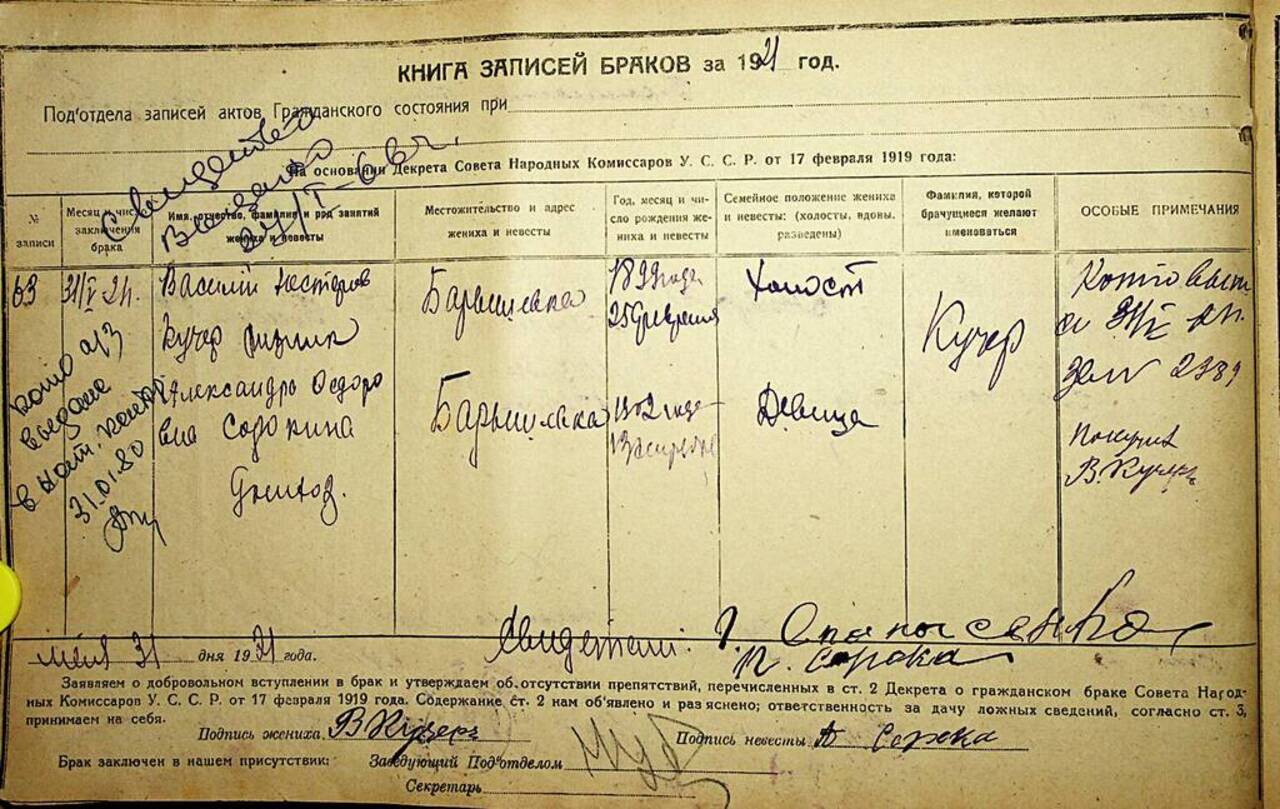 КНИГА ЗАПИСЕЙ БРАКОВ за 1921 год.
Под'отдела записей актов Гражданского состояния при
На основании Декрета Совета Народных Комиссаров У. С. С. Р. от 17 февраля 1919 года:
Свидетельство
24/I-66г.
№ записи
Месяц и число заключения брака
Имя, отчество, фамилия и род занятий жениха и невесты
Местожительство и адрес жениха и невесты
Год, месяц и число рождения жениха и невесты
Семейное положение жениха и невесты: (холосты, вдовы, разведены)
Фамилия, которой брачущиеся желают именоваться
ОСОБЫЕ ПРИМЕЧАНИЯ
63
31/V 21г.
Василий Нестеров
Кучер
Александра Федоро
вна Сорокина
Барышевка
Барышевка
1899 года
25 февраля
1902 года
Холост
Девица
Кучер
31/V 21г.
2389
В. Кучер
выдана
в нот. конт.
31.01.80
Свидетели: Г. Опанасенко
П. Сорока
мая 31 дня 1921 года.
Заявляем о добровольном вступлении в брак и утверждаем об отсутствии препятствий, перечисленных в ст. 2 Декрета о гражданском браке Совета Народ-
ных Комиссаров У. С. С. Р. от 17 февраля 1919 года. Содержание ст. 2 нам об'явлено и раз'яснено; ответственность за дачу ложных сведений, согласно ст. 3,
принимаем на себя.
Подпись жениха В Кучеръ Подпись невесты А Сорока
Брак заключен в нашем присутствии: Заведующий Под'отделом
Секретарь